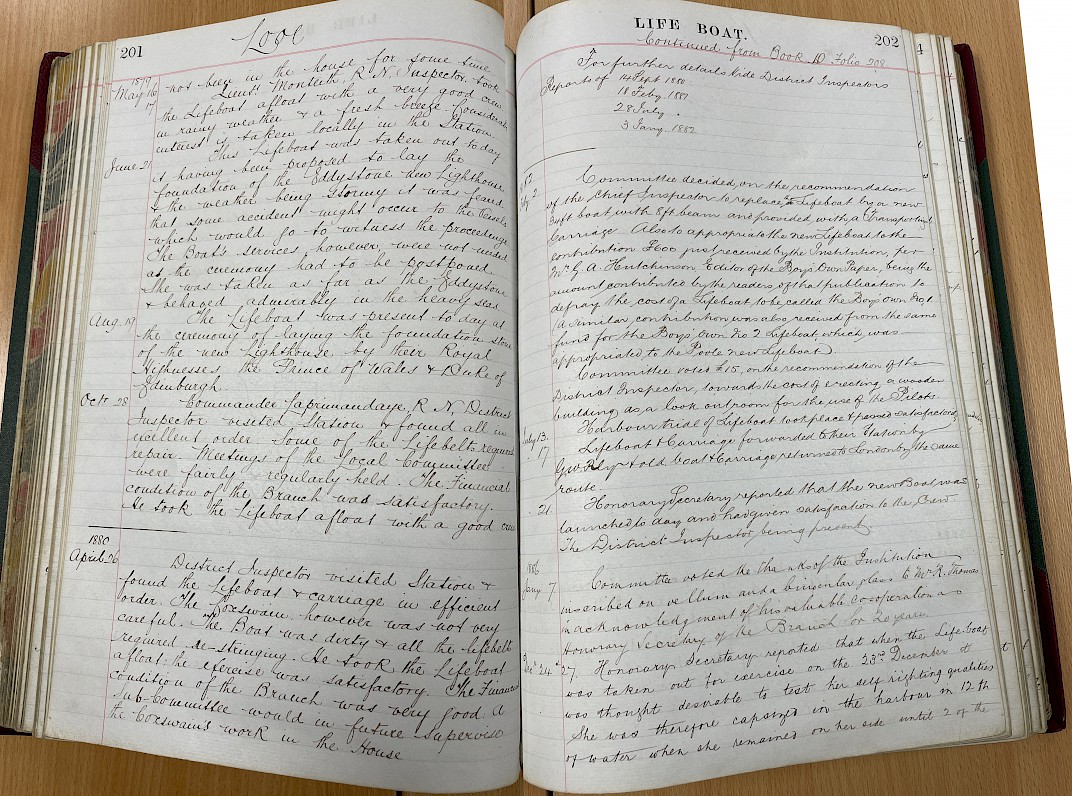 201
Looe
1879
May 16
17
not been in the house for some time
Lieut Monteith, R.N. Inspector, took
the Lifeboat afloat with a very good crew
in rainy weather & a fresh breeze. Considerable
interest is taken locally in the Station.
June 21
This Lifeboat was taken out today
it having been proposed to lay the
foundation of the Eddystone new Lighthouse
& the weather being stormy it was feared
that some accident might occur to the vessels
which would go to witness the proceedings
The Boat's services, however, were not needed
as the ceremony had to be postponed
She was taken as far as the Eddystone
& behaved admirably in the heavy seas
Aug. 19
The Lifeboat was present to day at
the ceremony of laying the foundation stone
of the new Lighthouse by their Royal
Highnesses the Prince of Wales & Duke of
Edinburgh.
Oct 28
Commander Laprimaudaye, R.N, District
Inspector visited Station & found all in
excellent order. Some of the lifebelts required
repair. Meetings of the Local Committee
were fairly regularly held. The Financial
condition of the Branch was satisfactory.
He took the Lifeboat afloat with a good crew
1880
April 26
District Inspector visited Station &
found the Lifeboat & carriage in efficient
order. The Coxswain however was not very
careful. The Boat was dirty & all the lifebelts
required re-stringing. He took the Lifeboat
afloat: the exercise was satisfactory. The Financial
condition of the Branch was very good. A
Sub-Committee would in future supervise
the Coxswain's work in the House
LIFE BOAT.
202
Continued from Book 10 Folio 208
For further details vide District Inspectors
Reports of 14 Sept 1880
18 Feby. 1881
28 July "
3 Jany. 1882
1882
Feby 2
Committee decided, on the recommendation
of the Chief Inspector to replace the Lifeboat by a new
boat with 8ft beam and provided with a Transporting
Carriage. Also to appropriate the new Lifeboat to the
contribution £600 just received by the Institution, per
Mr G. A. Hutchinson, Editor of the Boy's Own Paper, being the
amount contributed by the readers of that publication to
defray the cost of a Lifeboat to be called the Boy's Own No 1
(a similar contribution was also received from the same
fund for the Boy's own No 2 Lifeboat, which was
appropriated to the Poole new Lifeboat)
Committee voted £15, on the recommendation of the
District Inspector, towards the cost of erecting a wooden
building as a look out room for the use of the Pilots
July 13.
Harbour trial of Lifeboat took place & passed satisfactorily
17
Lifeboat & Carriage forwarded to their Station by
G.W. Rly & old boat & Carriage returned to London by the same
route.
21.
Honorary Secretary reported that the new Boat was
launched to day and had given satisfaction to the Crew
The District Inspector being present.
1886
Jany 7.
Committee voted the thanks of the Institution
inscribed on vellum and a binocular glass to Mr R. Thomas
in acknowledgment of his valuable co-operation as
Honorary Secretary of the Branch for 20 years
Dec 24th 27.
Honorary Secretary reported that when the Lifeboat
was taken out for exercise on the 23rd December it
was thought desirable to test her self righting qualities
She was therefore capsized in the harbour in 12 ft
of water when she remained on her side until 2 of the